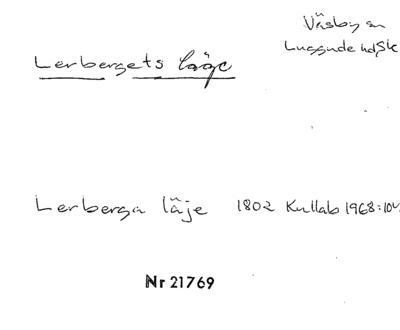 Väsby sn
Luggude hd, Sk
Lerbergets läge
Lerberga läje 1802 Kullab 1968:104
Nr 21769